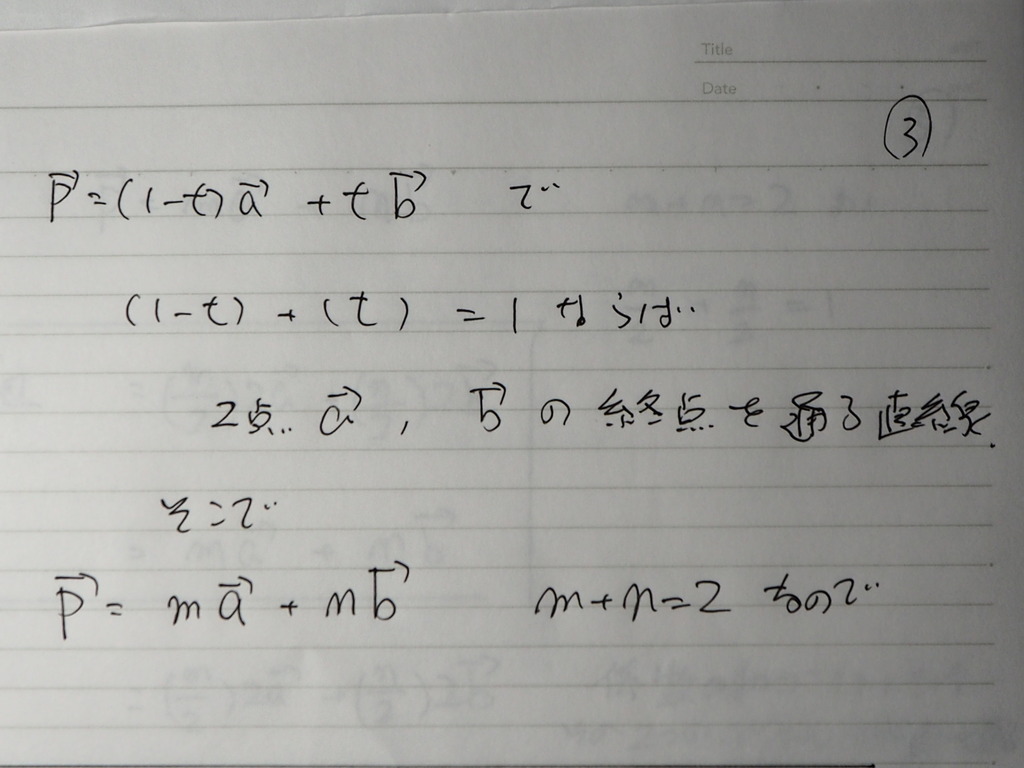 Title
Date
③
p⃗=(1-t)a⃗ + t b⃗ で
(1-t) + (t) = 1 ならば
2点 a⃗, b⃗ の終点を通る直線.
そこで
p⃗= m a⃗ + n b⃗ m+n=2 なので